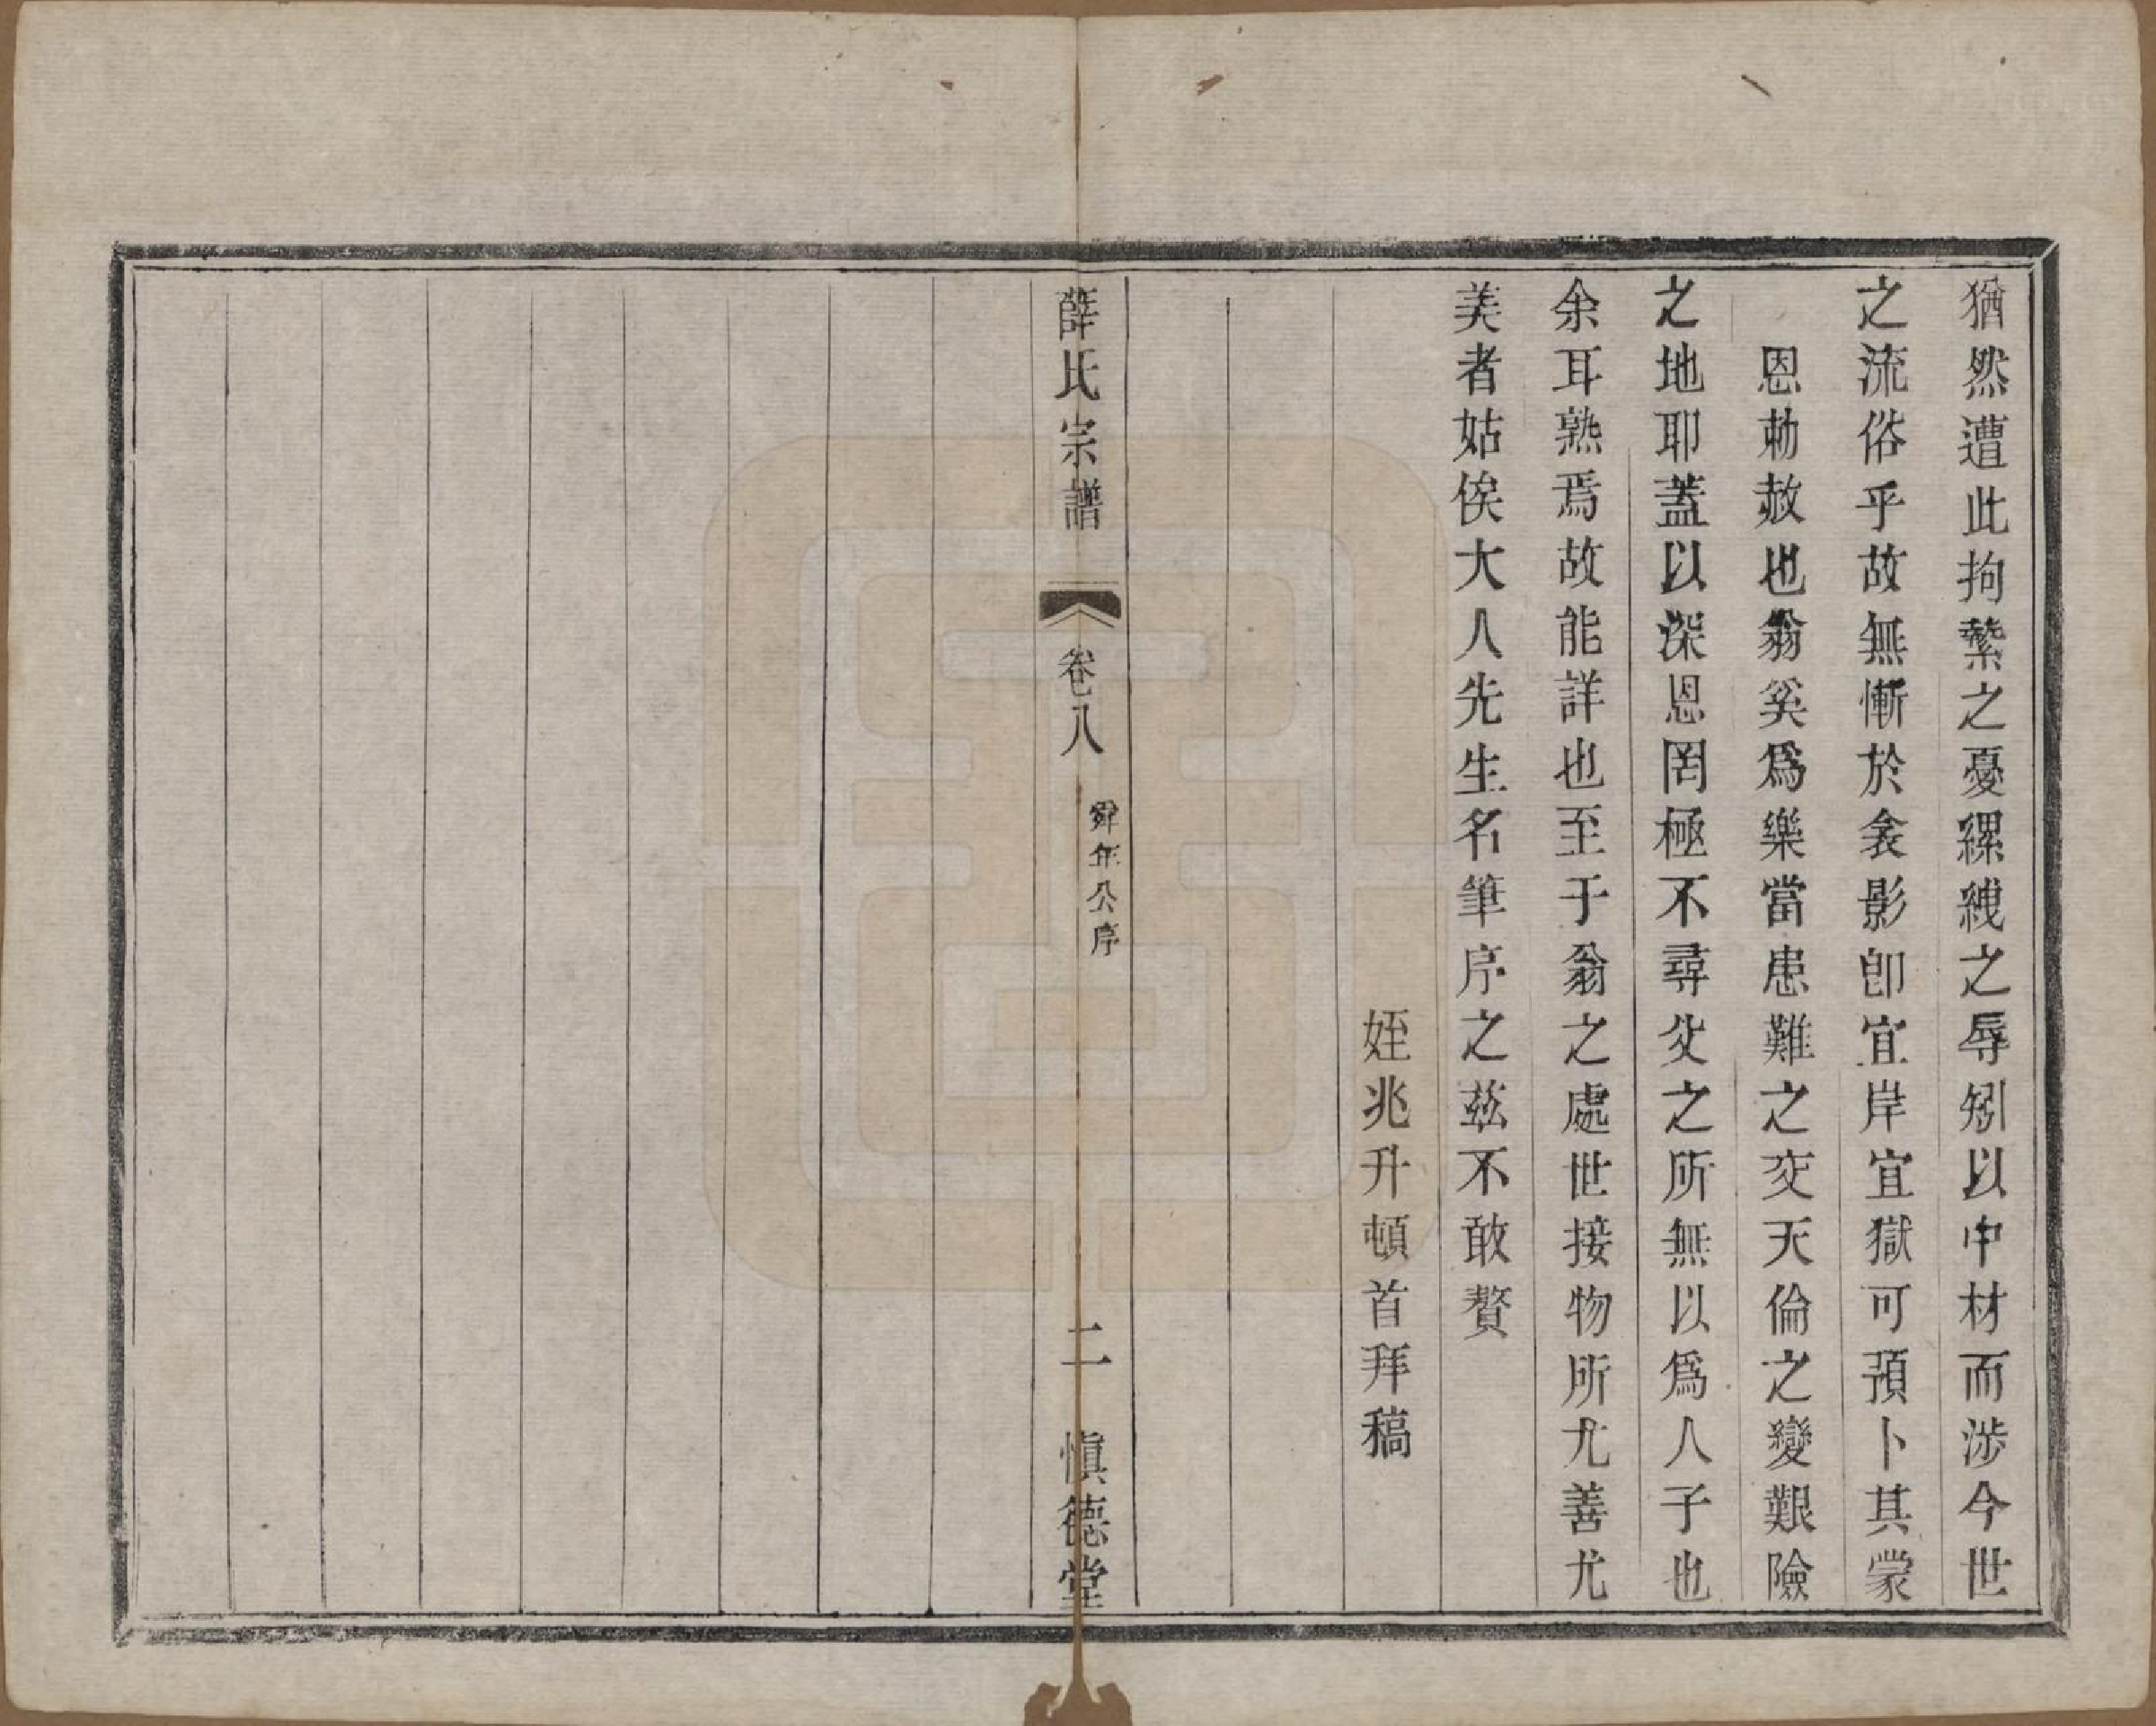 猶然遭此拘縶之憂縲絏之辱矧以中材而涉今世
之流俗乎故無慚於衾影卽宜岸宜獄可預卜其蒙
恩勅赦也翁奚爲樂當患難之交天倫之變艱險
之地耶蓋以深恩罔極不尋父之所無以爲人子也
余耳熟焉故能詳也至于翁之處世接物所尤善尤
美者姑俟大人先生名筆序之茲不敢贅
姪兆升頓首拜稿
薛氏宗譜
卷八
舜年公序
二
愼德堂